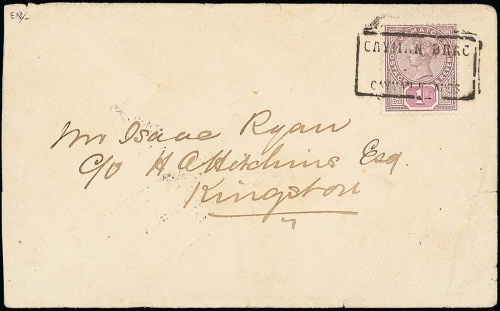 EN/-
JAMAICA
CAYMAN BRAC
CAYMAN
1D
Mr Isaac Ryan
c/o H A Hitchins Esq.
Kingston